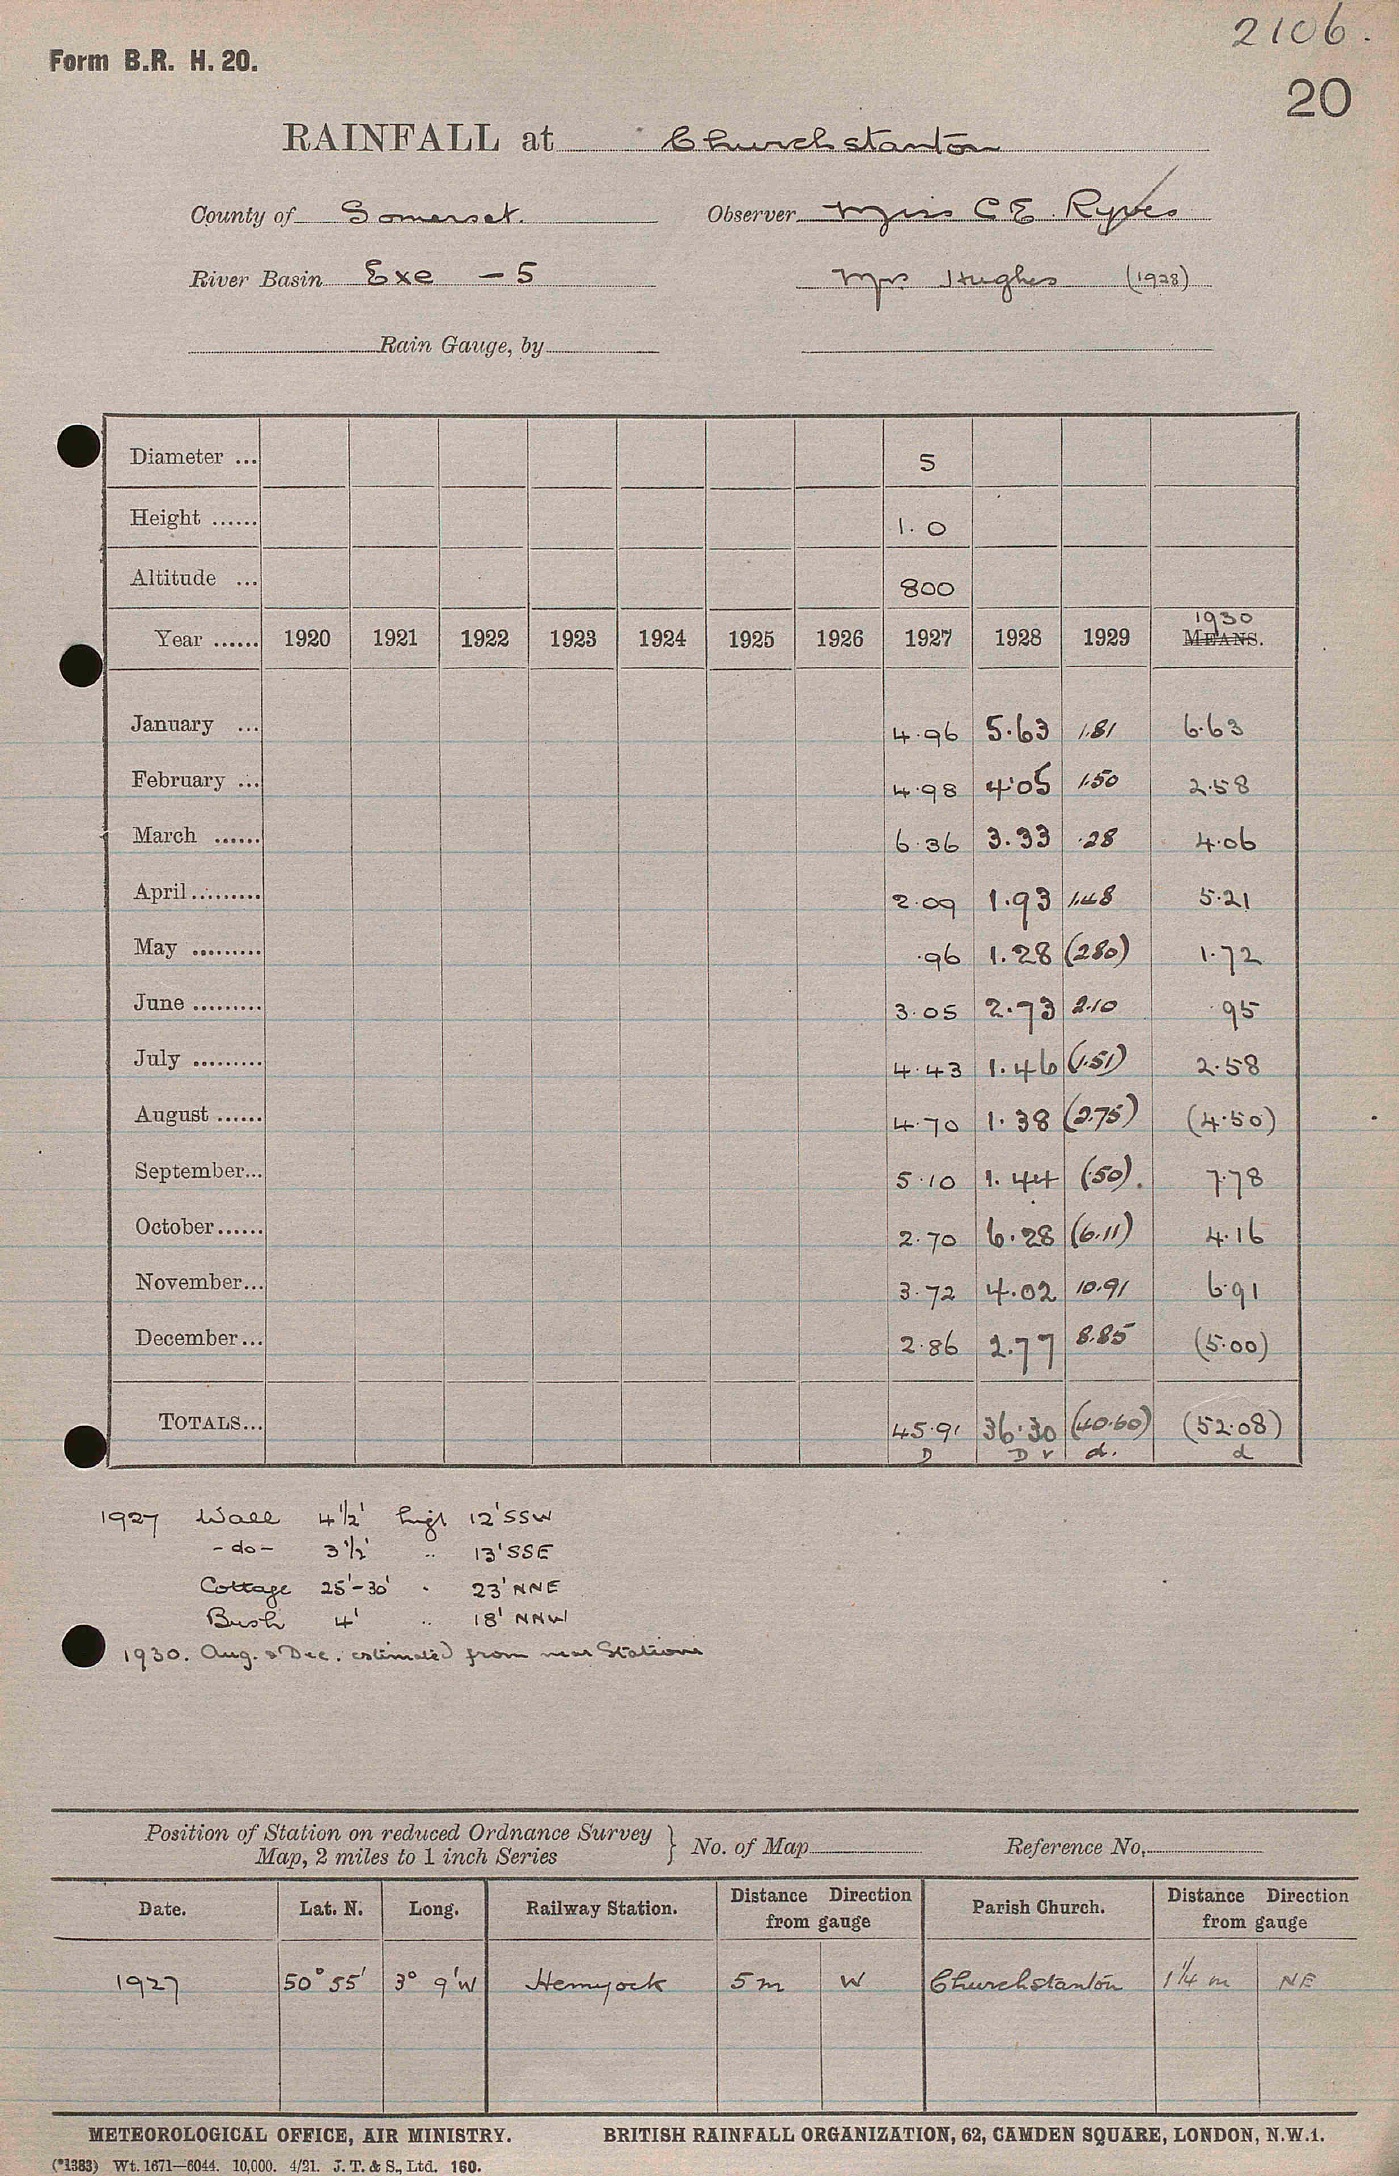 2106.
Form B.R. H. 20.
20
RAINFALL at Churchstanton
County of Somerset. Observer Miss C E Ryves
River Basin Exe - 5 Mrs Hughes (1928)
Rain Gauge, by
Diameter ... 5
Height ...... 1.0
Altitude ... 800
1930
Year ...... 1920 1921 1922 1923 1924 1925 1926 1927 1928 1929 MEANS.
January ... 4.96 5.63 1.81 6.63
February ... 4.98 4.05 1.50 2.58
March ...... 6.36 3.33 .28 4.06
April ......... 2.09 1.93 1.48 5.21
May ......... .96 1.28 (2.80) 1.72
June ......... 3.05 2.73 2.10 .95
July ......... 4.43 1.46 (1.51) 2.58
August ...... 4.70 1.38 (2.75) (4.50)
September... 5.10 1.44 (.50). 7.78
October...... 2.70 6.28 (6.11) 4.16
November... 3.72 4.02 10.91 6.91
December... 2.86 2.77 8.85 (5.00)
TOTALS... 45.91 36.30 (40.60) (52.08)
D D r d. d
1927 Wall 4½' high 12' SSW
-do- 3½' " 13' SSE
Cottage 25'-30' " 23' NNE
Bush 4' " 18' NNW
1930. Aug. & Dec. estimated from near Stations
Position of Station on reduced Ordnance Survey Map, 2 miles to 1 inch Series } No. of Map Reference No.
Date. Lat. N. Long. Railway Station. Distance Direction from gauge Parish Church. Distance Direction from gauge
1927 50° 55' 3° 9' W Hemyock 5 m W Churchstanton 1¼ m NE
METEOROLOGICAL OFFICE, AIR MINISTRY. BRITISH RAINFALL ORGANIZATION, 62, CAMDEN SQUARE, LONDON, N.W.1.
(*1383) Wt. 1671—6044. 10,000. 4/21. J. T. & S., Ltd. 160.